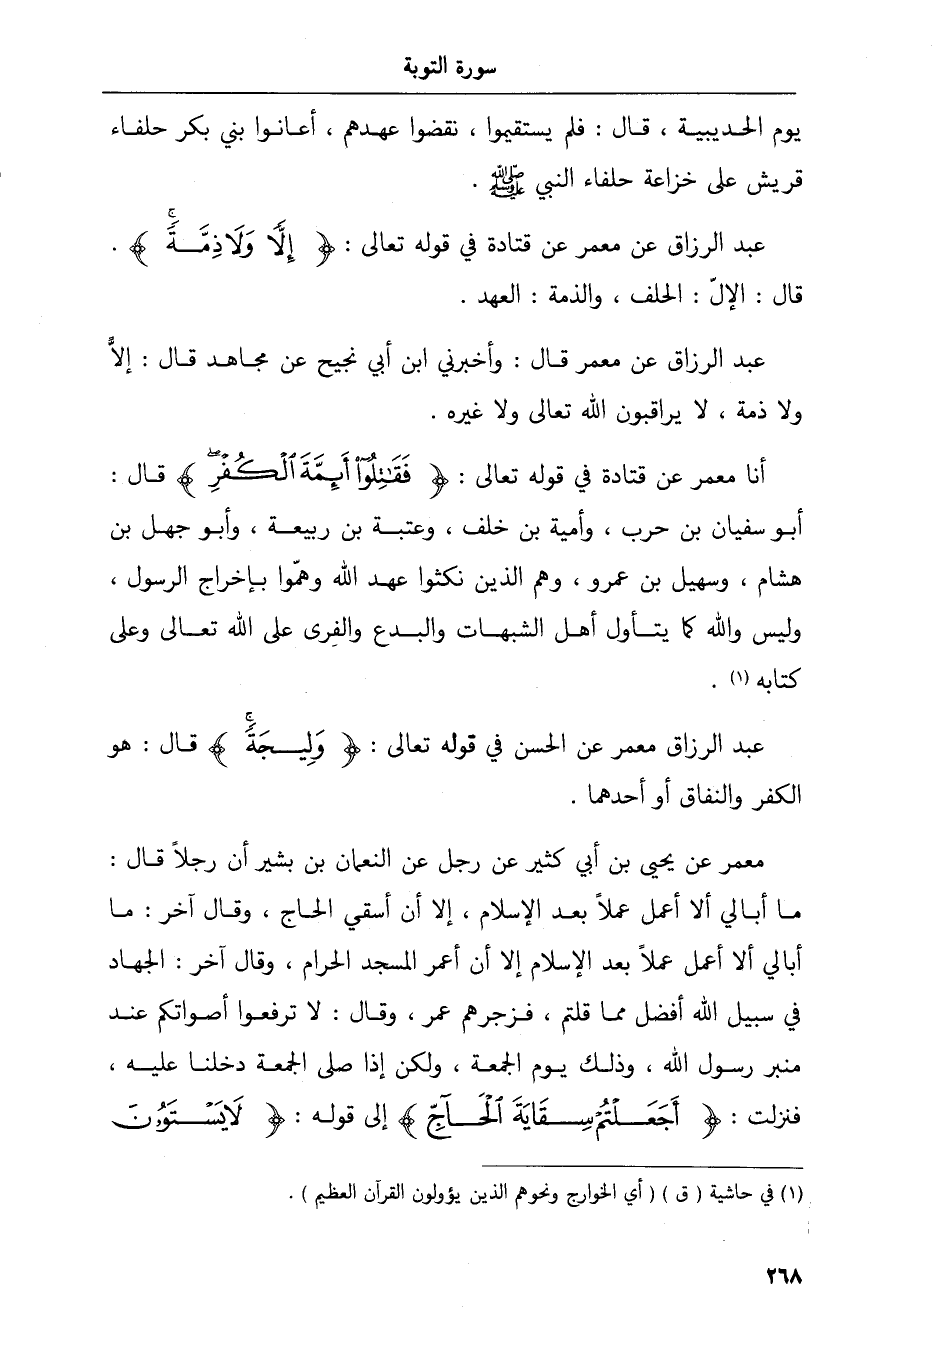 سورة التوبة
يوم الحديبية ، قال : فلم يستقيموا ، نقضوا عهدهم ، أعانوا بني بكر حلفاء
قريش على خزاعة حلفاء النبي ﷺ .
عبد الرزاق عن معمر عن قتادة في قوله تعالى : ﴿ إِلًّا وَلَا ذِمَّةً ۚ ﴾ .
قال : الإلّ : الحلف ، والذمة : العهد .
عبد الرزاق عن معمر قال : وأخبرني ابن أبي نجيح عن مجاهد قال : إلاًّ
ولا ذمة ، لا يراقبون الله تعالى ولا غيره .
أنا معمر عن قتادة في قوله تعالى : ﴿ فَقَٰتِلُوٓا۟ أَئِمَّةَ ٱلْكُفْرِ ۙ ﴾ قال :
أبو سفيان بن حرب ، وأمية بن خلف ، وعتبة بن ربيعة ، وأبو جهل بن
هشام ، وسهيل بن عمرو ، وهم الذين نكثوا عهد الله وهمّوا بإخراج الرسول ،
وليس والله كما يتأول أهل الشبهات والبدع والفرى على الله تعالى وعلى
كتابه (١) .
عبد الرزاق معمر عن الحسن في قوله تعالى : ﴿ وَلِيجَةً ۚ ﴾ قال : هو
الكفر والنفاق أو أحدهما .
معمر عن يحيى بن أبي كثير عن رجل عن النعمان بن بشير أن رجلاً قال :
ما أبالي ألا أعمل عملاً بعد الإسلام ، إلا أن أسقي الحاج ، وقال آخر : ما
أبالي ألا أعمل عملاً بعد الإسلام إلا أن أعمر المسجد الحرام ، وقال آخر : الجهاد
في سبيل الله أفضل مما قلتم ، فزجرهم عمر ، وقال : لا ترفعوا أصواتكم عند
منبر رسول الله ، وذلك يوم الجمعة ، ولكن إذا صلى الجمعة دخلنا عليه ،
فنزلت : ﴿ أَجَعَلْتُمْ سِقَايَةَ ٱلْحَآجِّ ﴾ إلى قوله : ﴿ لَا يَسْتَوُۥنَ
(١) في حاشية ( ق ) ( أي الخوارج ونحوهم الذين يؤولون القرآن العظيم ) .
٢٦٨